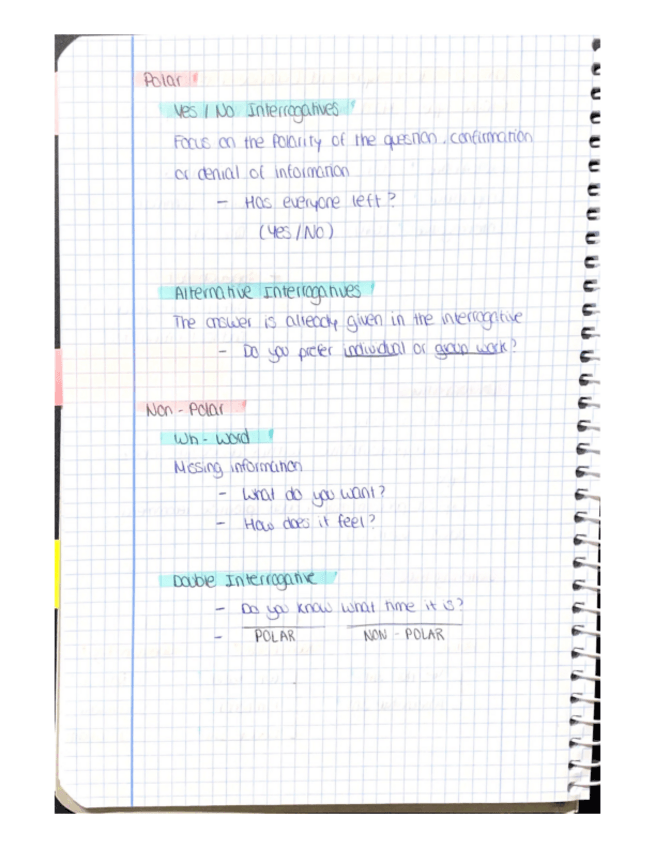 Polar
Yes / No Interrogatives
Focus on the Polarity of the question, confirmation
or denial of information
- Has everyone left?
(Yes / No)
Alternative Interrogatives
The answer is already given in the interrogative
- Do you prefer individual or group work?
Non - Polar
Wh - Word
Missing information
- What do you want?
- How does it feel?
Double Interrogative
- Do you know what time it is?
- POLAR NON - POLAR